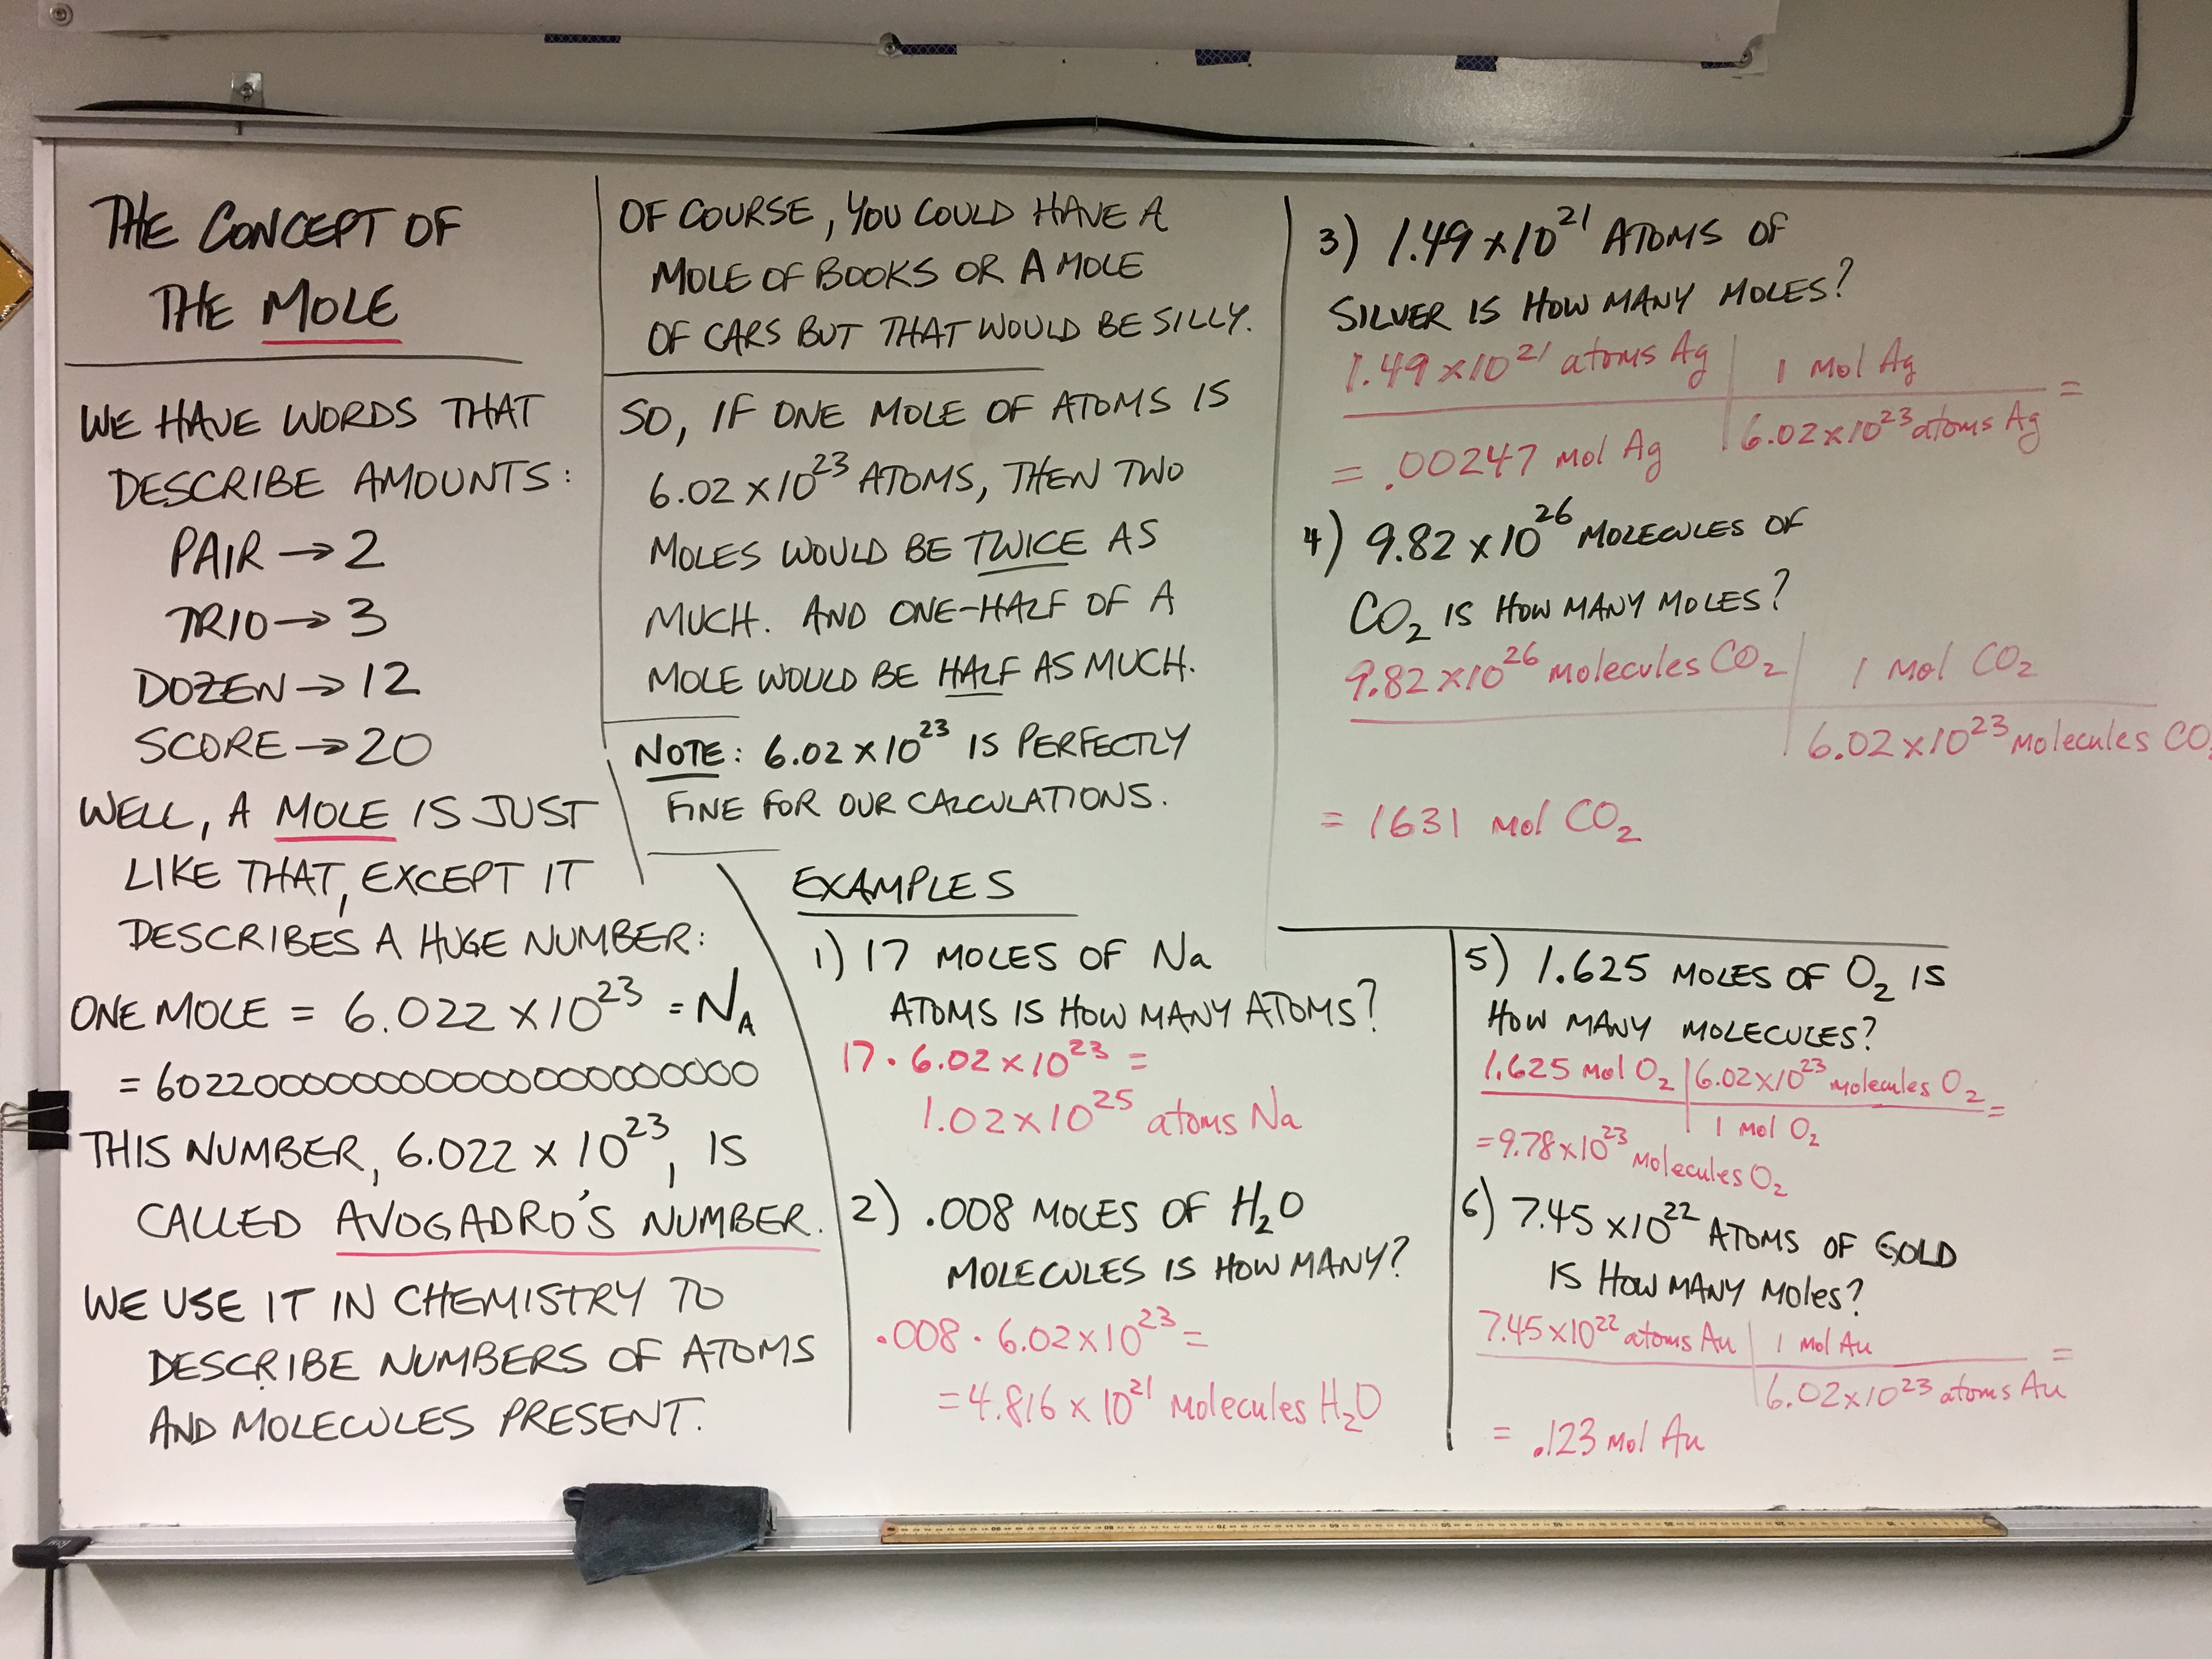 THE CONCEPT OF
THE MOLE
WE HAVE WORDS THAT
DESCRIBE AMOUNTS:
PAIR → 2
TRIO → 3
DOZEN → 12
SCORE → 20
WELL, A MOLE IS JUST
LIKE THAT, EXCEPT IT
DESCRIBES A HUGE NUMBER:
ONE MOLE = 6.022 x 10²³ = N_A
= 602200000000000000000000
THIS NUMBER, 6.022 x 10²³, IS
CALLED AVOGADRO'S NUMBER.
WE USE IT IN CHEMISTRY TO
DESCRIBE NUMBERS OF ATOMS
AND MOLECULES PRESENT.
OF COURSE, YOU COULD HAVE A
MOLE OF BOOKS OR A MOLE
OF CARS BUT THAT WOULD BE SILLY.
SO, IF ONE MOLE OF ATOMS IS
6.02 x 10²³ ATOMS, THEN TWO
MOLES WOULD BE TWICE AS
MUCH. AND ONE-HALF OF A
MOLE WOULD BE HALF AS MUCH.
NOTE: 6.02 x 10²³ IS PERFECTLY
FINE FOR OUR CALCULATIONS.
EXAMPLES
1) 17 MOLES OF Na
ATOMS IS HOW MANY ATOMS?
17 · 6.02 x 10²³ =
1.02 x 10²⁵ atoms Na
2) .008 MOLES OF H₂O
MOLECULES IS HOW MANY?
.008 · 6.02 x 10²³ =
= 4.816 x 10²¹ molecules H₂O
3) 1.49 x 10²¹ ATOMS OF
SILVER IS HOW MANY MOLES?
1.49 x 10²¹ atoms Ag | 1 mol Ag =
6.02 x 10²³ atoms Ag
= .00247 mol Ag
4) 9.82 x 10²⁶ MOLECULES OF
CO₂ IS HOW MANY MOLES?
9.82 x 10²⁶ molecules CO₂ | 1 mol CO₂
6.02 x 10²³ molecules CO₂
= 1631 mol CO₂
5) 1.625 MOLES OF O₂ IS
HOW MANY MOLECULES?
1.625 mol O₂ | 6.02 x 10²³ molecules O₂ =
1 mol O₂
= 9.78 x 10²³ molecules O₂
6) 7.45 x 10²² ATOMS OF GOLD
IS HOW MANY MOLES?
7.45 x 10²² atoms Au | 1 mol Au =
6.02 x 10²³ atoms Au
= .123 mol Au